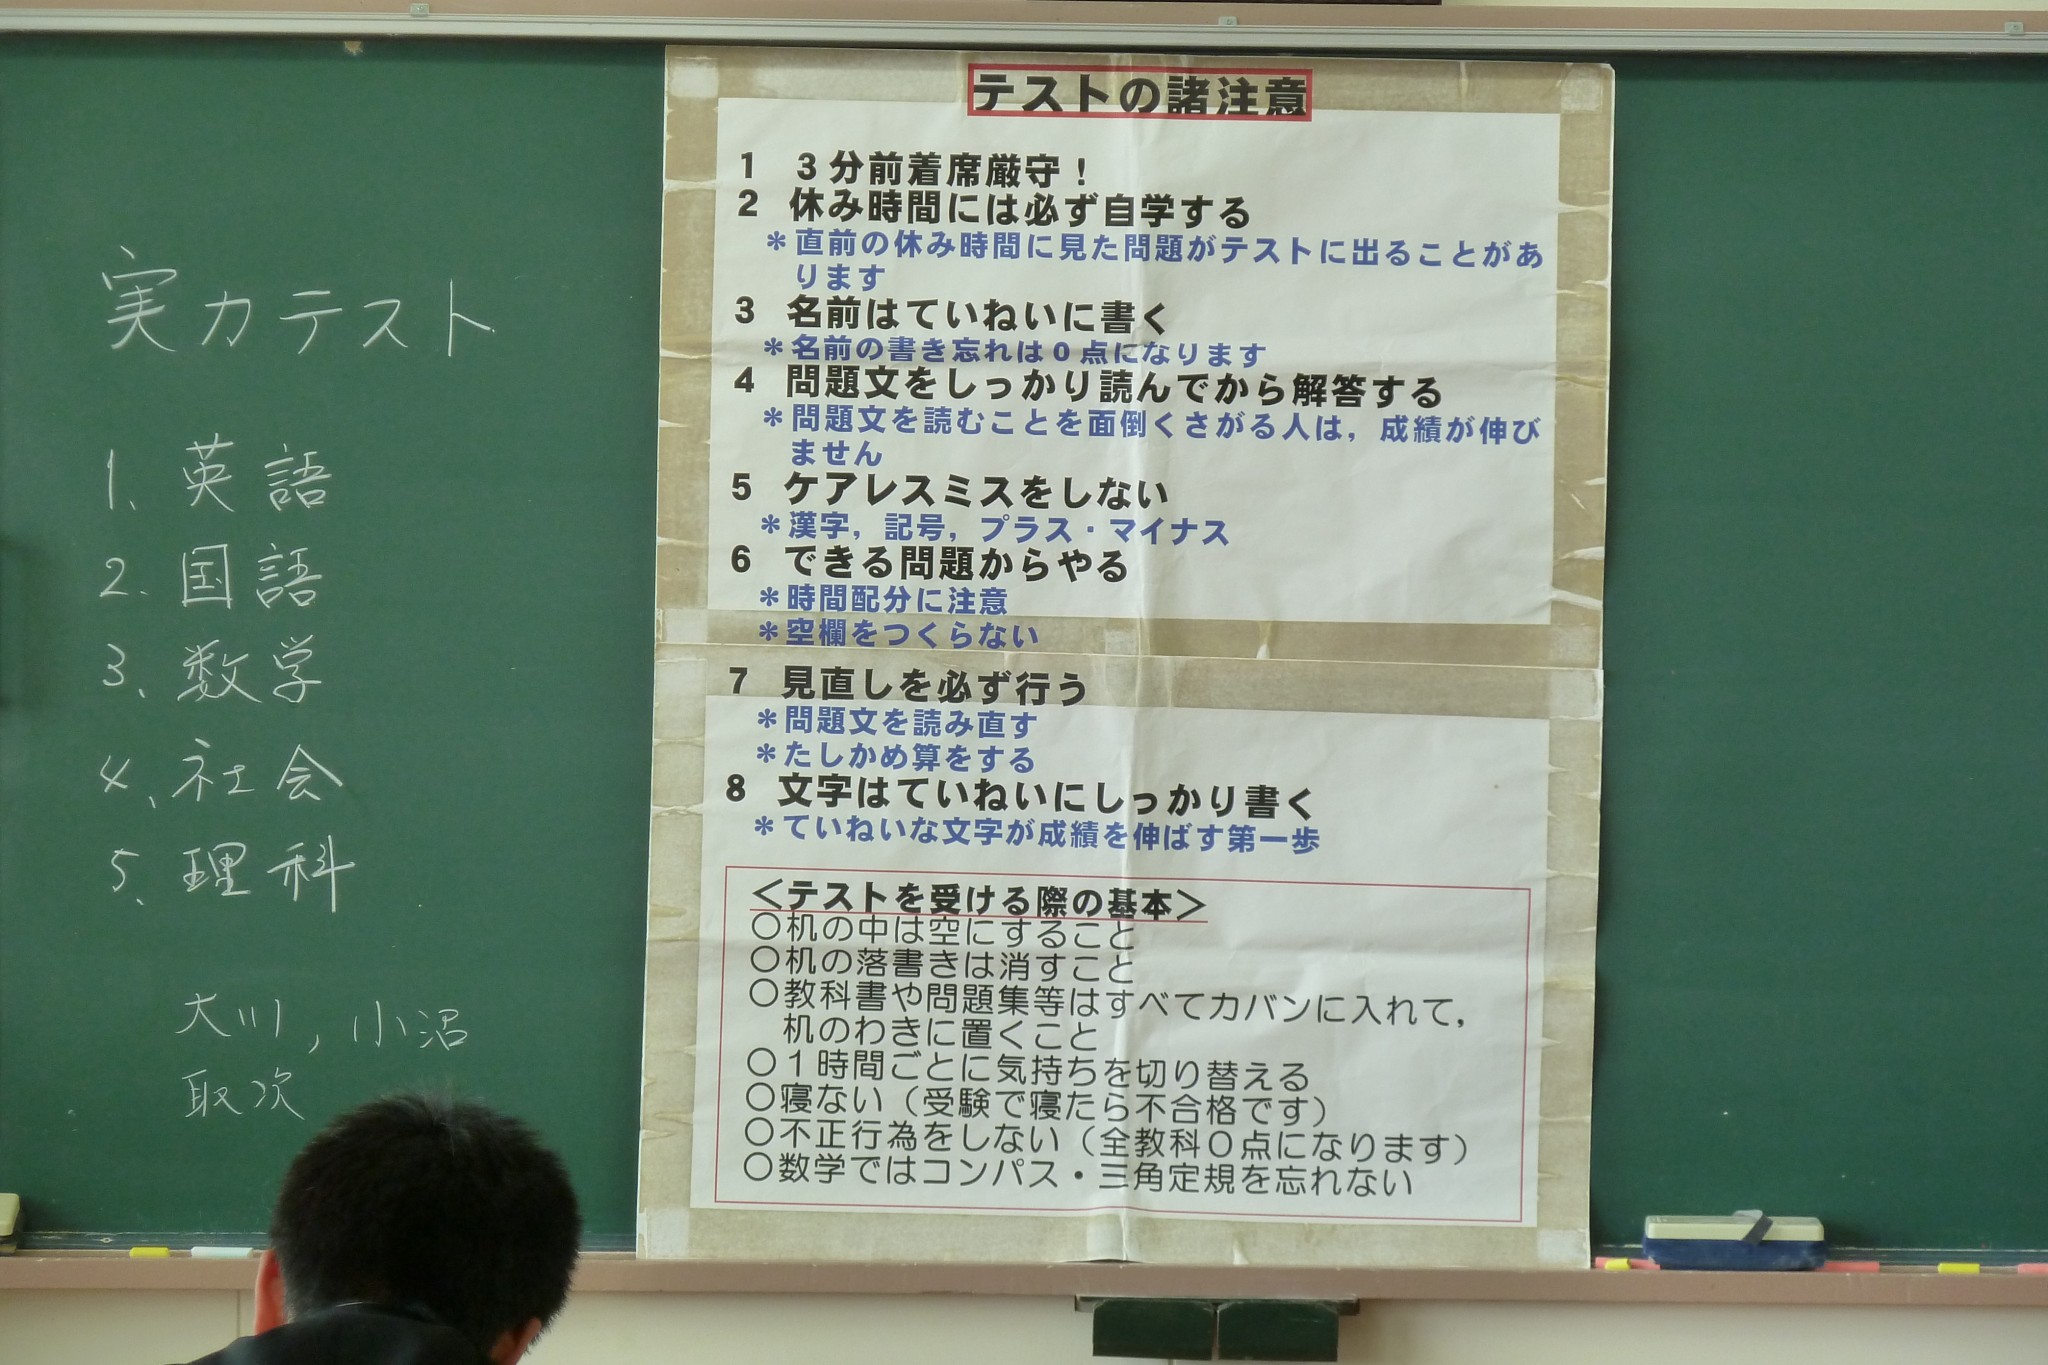 実力テスト
1. 英語
2. 国語
3. 数学
4. 社会
5. 理科
大川, 小沼
取次
テストの諸注意
1 3分前着席厳守!
2 休み時間には必ず自学する
*直前の休み時間に見た問題がテストに出ることがあ
ります
3 名前はていねいに書く
*名前の書き忘れは0点になります
4 問題文をしっかり読んでから解答する
*問題文を読むことを面倒くさがる人は,成績が伸び
ません
5 ケアレスミスをしない
*漢字,記号,プラス・マイナス
6 できる問題からやる
*時間配分に注意
*空欄をつくらない
7 見直しを必ず行う
*問題文を読み直す
*たしかめ算をする
8 文字はていねいにしっかり書く
*ていねいな文字が成績を伸ばす第一歩
<テストを受ける際の基本>
○机の中は空にすること
○机の落書きは消すこと
○教科書や問題集等はすべてカバンに入れて,
机のわきに置くこと
○1時間ごとに気持ちを切り替える
○寝ない(受験で寝たら不合格です)
○不正行為をしない(全教科0点になります)
○数学ではコンパス・三角定規を忘れない